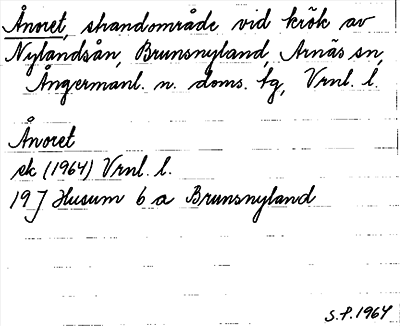 Ånoret, strandområde vid krök av
Nylandsån, Brunsnyland, Arnäs sn,
Ångermanl. n. doms. tg, Vrnl. l.
Ånoret
ek (1964) Vrnl. l.
19 J Husum 6 a Brunsnyland
S.P. 1964